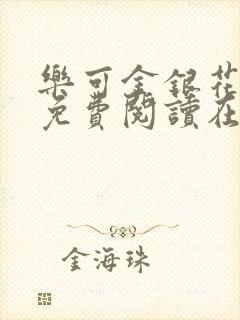 樂可金銀花
免費閱讀在
金海珠